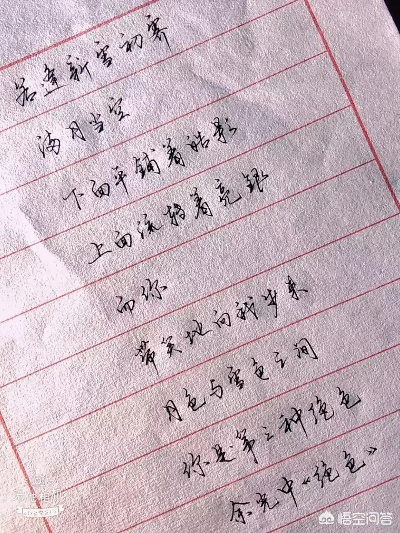 若逢新雪初霁
满月当空
下面平铺着皓影
上面流转着亮银
而你
带笑地向我步来
月色与雪色之间
你是第三种绝色
余光中《绝色》
悟空问答